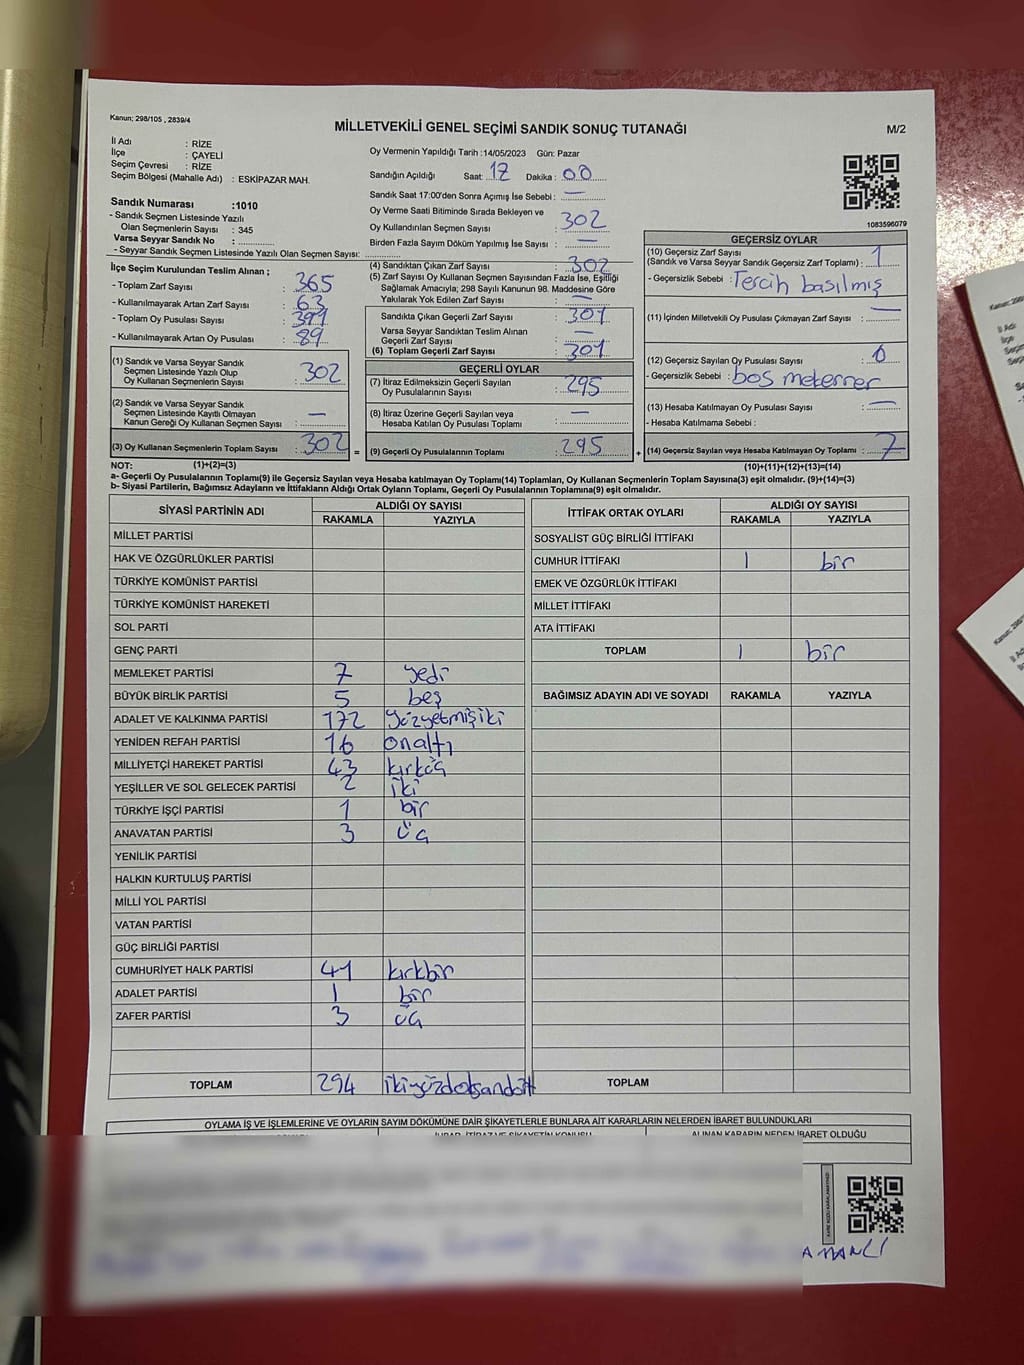 Kanun; 298/105 , 2839/4
MİLLETVEKİLİ GENEL SEÇİMİ SANDIK SONUÇ TUTANAĞI
M/2
İl Adı : RİZE
İlçe : ÇAYELİ
Seçim Çevresi : RİZE
Seçim Bölgesi (Mahalle Adı) : ESKİPAZAR MAH.
Sandık Numarası :1010
- Sandık Seçmen Listesinde Yazılı
Olan Seçmenlerin Sayısı : 345
Varsa Seyyar Sandık No : ..............
- Seyyar Sandık Seçmen Listesinde Yazılı Olan Seçmen Sayısı: ..............
Oy Vermenin Yapıldığı Tarih :14/05/2023 Gün: Pazar
Sandığın Açıldığı Saat: 17 Dakika : 00
Sandık Saat 17:00'den Sonra Açımış İse Sebebi : —
Oy Verme Saati Bitiminde Sırada Bekleyen ve
Oy Kullandırılan Seçmen Sayısı : 302
Birden Fazla Sayım Döküm Yapılmış İse Sayısı : —
1083596079
İlçe Seçim Kurulundan Teslim Alınan ;
- Toplam Zarf Sayısı : 365
- Kullanılmayarak Artan Zarf Sayısı : 63
- Toplam Oy Pusulası Sayısı : 391
- Kullanılmayarak Artan Oy Pusulası : 89
(1) Sandık ve Varsa Seyyar Sandık
Seçmen Listesinde Yazılı Olup
Oy Kullanan Seçmenlerin Sayısı : 302
(2) Sandık ve Varsa Seyyar Sandık
Seçmen Listesinde Kayıtlı Olmayan
Kanun Gereği Oy Kullanan Seçmen Sayısı : —
(3) Oy Kullanan Seçmenlerin Toplam Sayısı : 302
(4) Sandıktan Çıkan Zarf Sayısı : 302
(5) Zarf Sayısı Oy Kullanan Seçmen Sayısından Fazla İse, Eşitliği
Sağlamak Amacıyla; 298 Sayılı Kanunun 98. Maddesine Göre
Yakılarak Yok Edilen Zarf Sayısı : —
Sandıkta Çıkan Geçerli Zarf Sayısı : 301
Varsa Seyyar Sandıktan Teslim Alınan
Geçerli Zarf Sayısı : —
(6) Toplam Geçerli Zarf Sayısı : 301
GEÇERLİ OYLAR
(7) İtiraz Edilmeksizin Geçerli Sayılan
Oy Pusulalarının Sayısı : 295
(8) İtiraz Üzerine Geçerli Sayılan veya
Hesaba Katılan Oy Pusulası Toplamı : —
= (9) Geçerli Oy Pusulalarının Toplamı : 295
GEÇERSİZ OYLAR
(10) Geçersiz Zarf Sayısı
(Sandık ve Varsa Seyyar Sandık Geçersiz Zarf Toplamı) : 1
- Geçersizlik Sebebi : Tercih basılmış
(11) İçinden Milletvekili Oy Pusulası Çıkmayan Zarf Sayısı : —
(12) Geçersiz Sayılan Oy Pusulası Sayısı : 6
- Geçersizlik Sebebi : boş
(13) Hesaba Katılmayan Oy Pusulası Sayısı : —
- Hesaba Katılmama Sebebi :
+ (14) Geçersiz Sayılan veya Hesaba Katılmayan Oy Toplamı : 7
NOT: (1)+(2)=(3)
(10)+(11)+(12)+(13)=(14)
a- Geçerli Oy Pusulalarının Toplamı(9) ile Geçersiz Sayılan veya Hesaba katılmayan Oy Toplamı(14) Toplamları, Oy Kullanan Seçmenlerin Toplam Sayısına(3) eşit olmalıdır. (9)+(14)=(3)
b- Siyasi Partilerin, Bağımsız Adayların ve İttifakların Aldığı Ortak Oyların Toplamı, Geçerli Oy Pusulalarının Toplamına(9) eşit olmalıdır.
SİYASİ PARTİNİN ADI ALDIĞI OY SAYISI
RAKAMLA YAZIYLA
MİLLET PARTİSİ
HAK VE ÖZGÜRLÜKLER PARTİSİ
TÜRKİYE KOMÜNİST PARTİSİ
TÜRKİYE KOMÜNİST HAREKETİ
SOL PARTİ
GENÇ PARTİ
MEMLEKET PARTİSİ 7 yedi
BÜYÜK BİRLİK PARTİSİ 5 beş
ADALET VE KALKINMA PARTİSİ 172 yüzyetmişiki
YENİDEN REFAH PARTİSİ 16 onaltı
MİLLİYETÇİ HAREKET PARTİSİ 43 kırküç
YEŞİLLER VE SOL GELECEK PARTİSİ 2 iki
TÜRKİYE İŞÇİ PARTİSİ 1 bir
ANAVATAN PARTİSİ 3 üç
YENİLİK PARTİSİ
HALKIN KURTULUŞ PARTİSİ
MİLLİ YOL PARTİSİ
VATAN PARTİSİ
GÜÇ BİRLİĞİ PARTİSİ
CUMHURİYET HALK PARTİSİ 41 kırkbir
ADALET PARTİSİ 1 bir
ZAFER PARTİSİ 3 üç
TOPLAM 294 ikiyüzdoksandört
İTTİFAK ORTAK OYLARI ALDIĞI OY SAYISI
RAKAMLA YAZIYLA
SOSYALİST GÜÇ BİRLİĞİ İTTİFAKI
CUMHUR İTTİFAKI 1 bir
EMEK VE ÖZGÜRLÜK İTTİFAKI
MİLLET İTTİFAKI
ATA İTTİFAKI
TOPLAM 1 bir
BAĞIMSIZ ADAYIN ADI VE SOYADI RAKAMLA YAZIYLA
TOPLAM
OYLAMA İŞ VE İŞLEMLERİNE VE OYLARIN SAYIM DÖKÜMÜNE DAİR ŞİKAYETLERLE BUNLARA AİT KARARLARIN NELERDEN İBARET BULUNDUKLARI
İHBAR, İTİRAZ VE ŞİKAYETİN KONUSU
ALINAN KARARIN NEDEN İBARET OLDUĞU
AMANLI